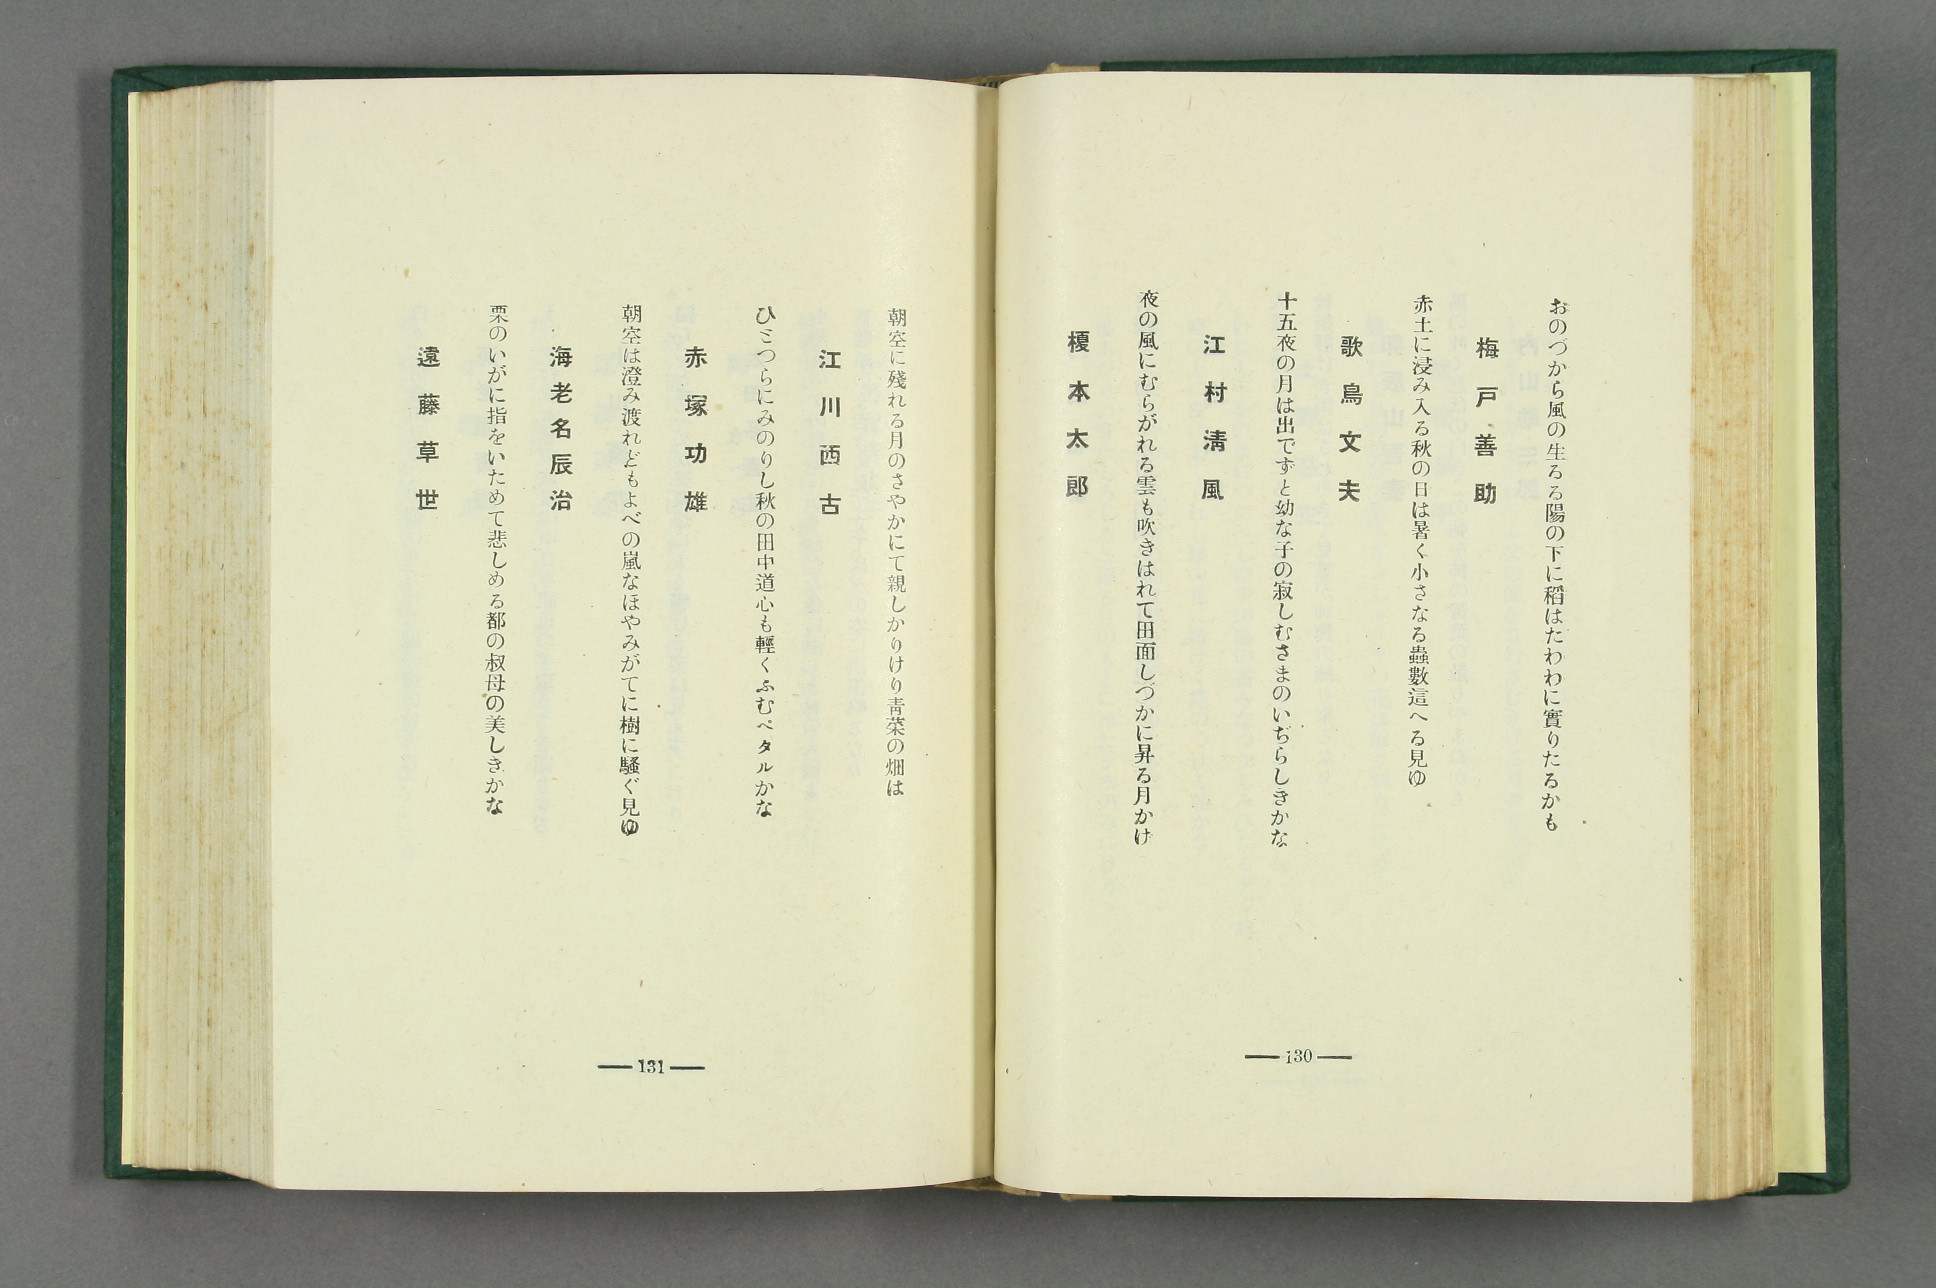 おのづから風の生るる陽の下に稻はたわわに實りたるかも
梅戸善助
赤土に浸み入る秋の日は暑く小さなる蟲數這へる見ゆ
歌鳥文夫
十五夜の月は出でずと幼な子の寂しむさまのいぢらしきかな
江村淸風
夜の風にむらがれる雲も吹きはれて田面しづかに昇る月かげ
榎本太郎
―130―
朝空に殘れる月のさやかにて親しかりけり靑菜の畑は
江川西古
ひとつらにみのりし秋の田中道心も輕くふむペタルかな
赤塚功雄
朝空は澄み渡れどもよべの嵐なほやみがてに樹に騷ぐ見ゆ
海老名辰治
栗のいがに指をいためて悲しめる都の叔母の美しきかな
遠藤草世
―131―